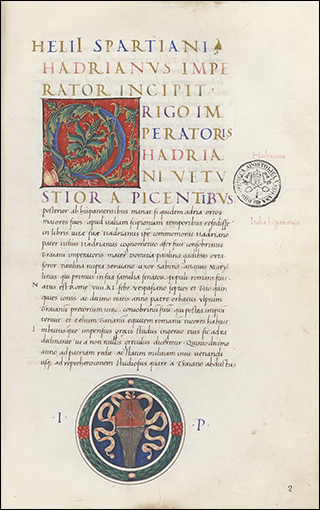 HELII SPARTIANI
HADRIANVS IMPE
RATOR INCIPIT
O RIGO IM
PERATORIS
HADRIA
NI VETV
STIOR A PICENTIBVS
posterior ab hispaniensibus manat siquidem adria ortos
maiores suos apud italiam scipionum temporibus resedisse
in libris vitae suae Hadrianus ipse commemorat Hadriano
pater Helius Hadrianus cognomento afer fuit consobrinus
Traiani imperatoris mater Domitia paulina gadibus orta
soror paulina nupta serviano uxor sabina atavus Maryl
linus qui primus in sua familia senator populi romani fuit
N
natus est Romae VIIII Kl febr vespasiano septies et Tito quin
quies ac decimo aetatis anno patre orbatus ulpium
Traianum
I
imbutusque impensius graecis studiis ingenio eius sic ad ea
declinante ut a non nullis graeculus diceretur Quintodecimo
anno ad patriam rediit ac statim militiam iniit venandi
usque ad reprehensionem studiosus quare a Traiano abductus
Hadrianus
I P
2